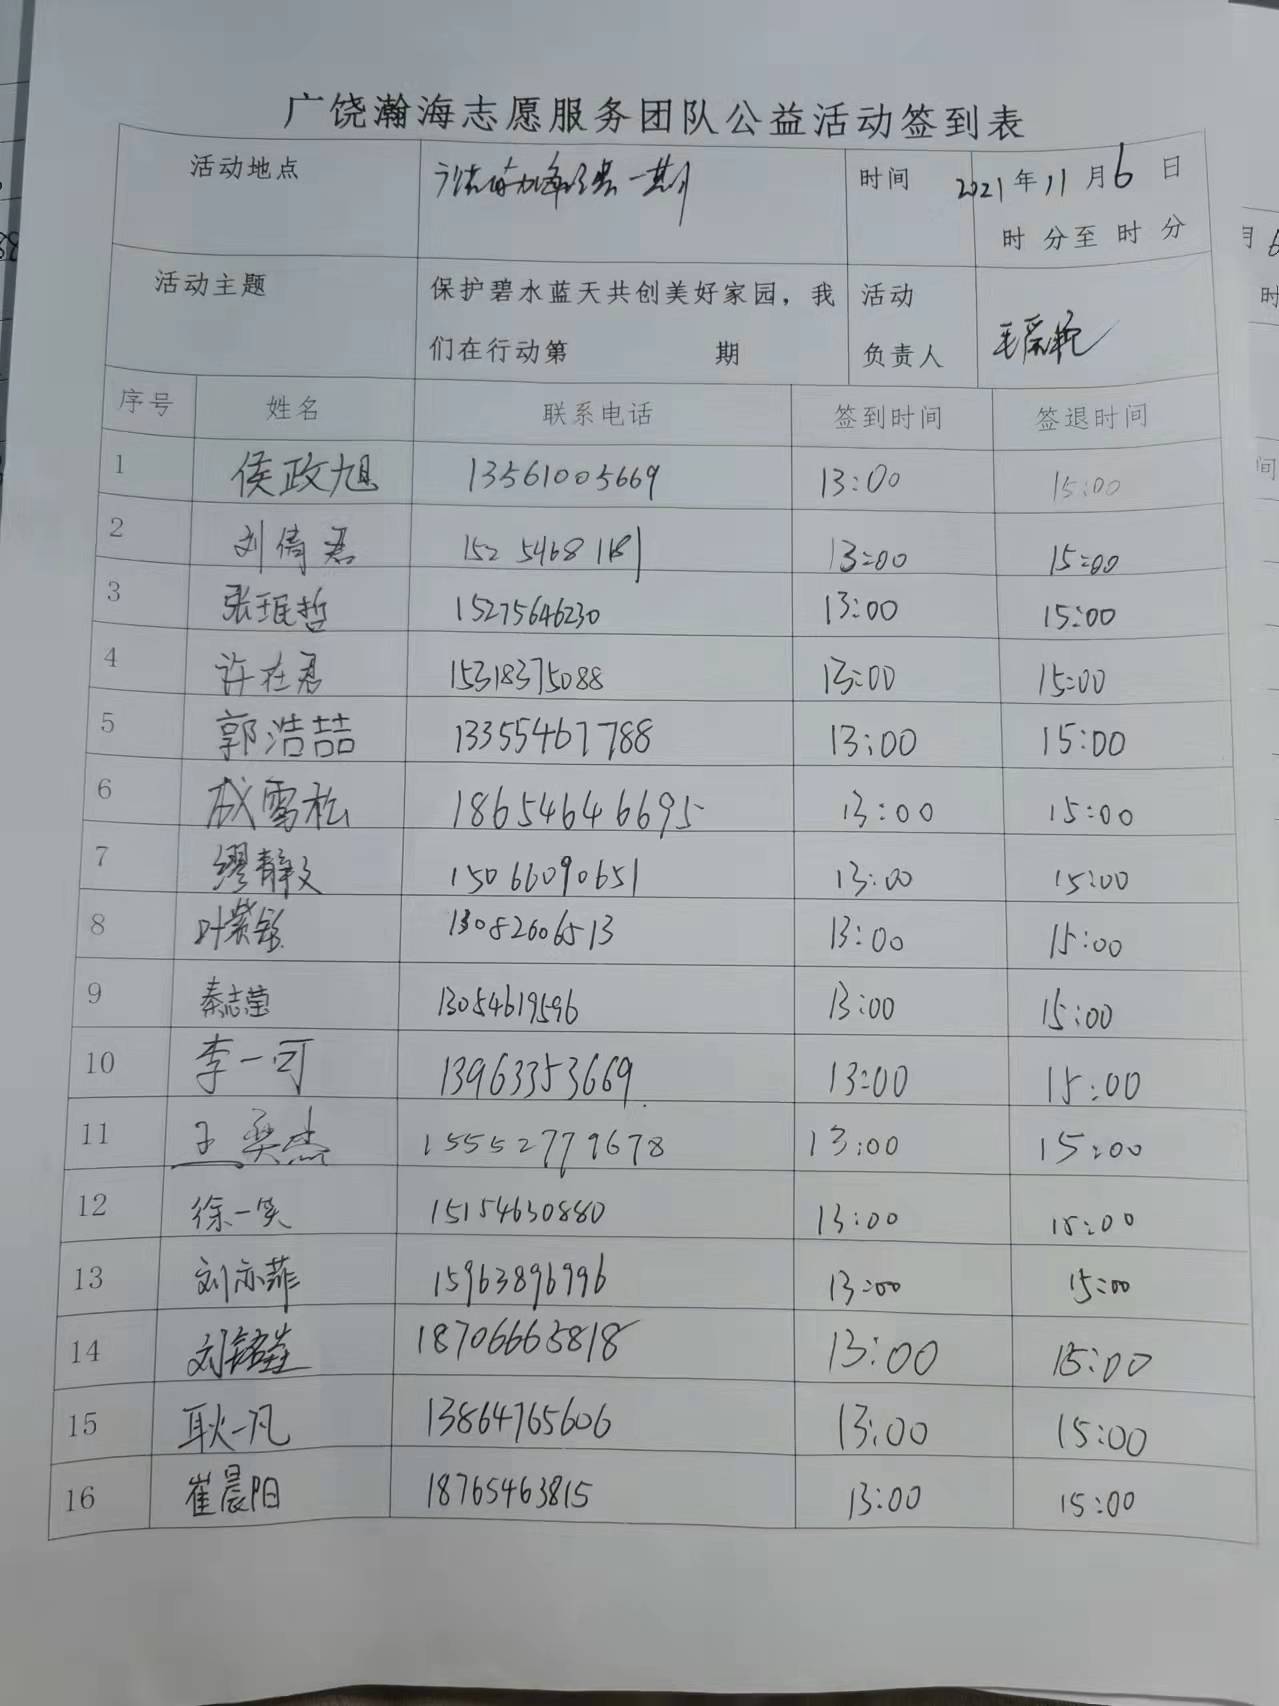 广饶瀚海志愿服务团队公益活动签到表
活动地点 一期 时间 2021年11月6日
时 分至 时 分
活动主题 保护碧水蓝天共创美好家园，我 活动
们在行动第 期 负责人
序号 姓名 联系电话 签到时间 签退时间
1 侯政旭 13561005669 13:00 15:00
2 刘倩君 15254681181 13:00 15:00
3 张珉哲 15275646230 13:00 15:00
4 许在君 15318375088 13:00 15:00
5 郭浩喆 13355467788 13:00 15:00
6 成雪松 18654646695 13:00 15:00
7 缪静文 15066090651 13:00 15:00
8 叶紫 13082606513 13:00 15:00
9 秦志莹 13054619596 13:00 15:00
10 李一可 13963353669 13:00 15:00
11 王奕杰 15552779678 13:00 15:00
12 徐一笑 15154630880 13:00 15:00
13 刘亦菲 15963896996 13:00 15:00
14 刘铭 18706663818 13:00 15:00
15 耿一凡 13864765606 13:00 15:00
16 崔晨阳 18765463815 13:00 15:00